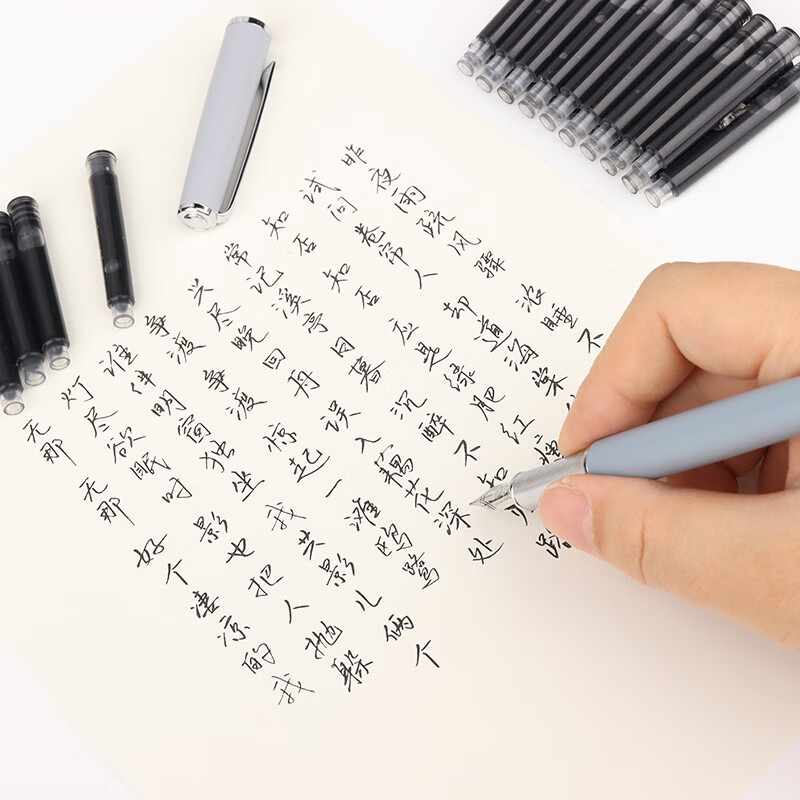 昨夜雨疏风骤 浓睡不
试问卷帘人 却道海棠
知否知否 应是绿肥红瘦
常记溪亭日暮 沉醉不知 路
兴尽晚回舟 误入藕花深处
争渡争渡 惊起一滩鸥鹭
谁伴明窗独坐 我共影儿俩个
灯尽欲眠时 影也把人抛躲
无那无那 好个凄凉的我